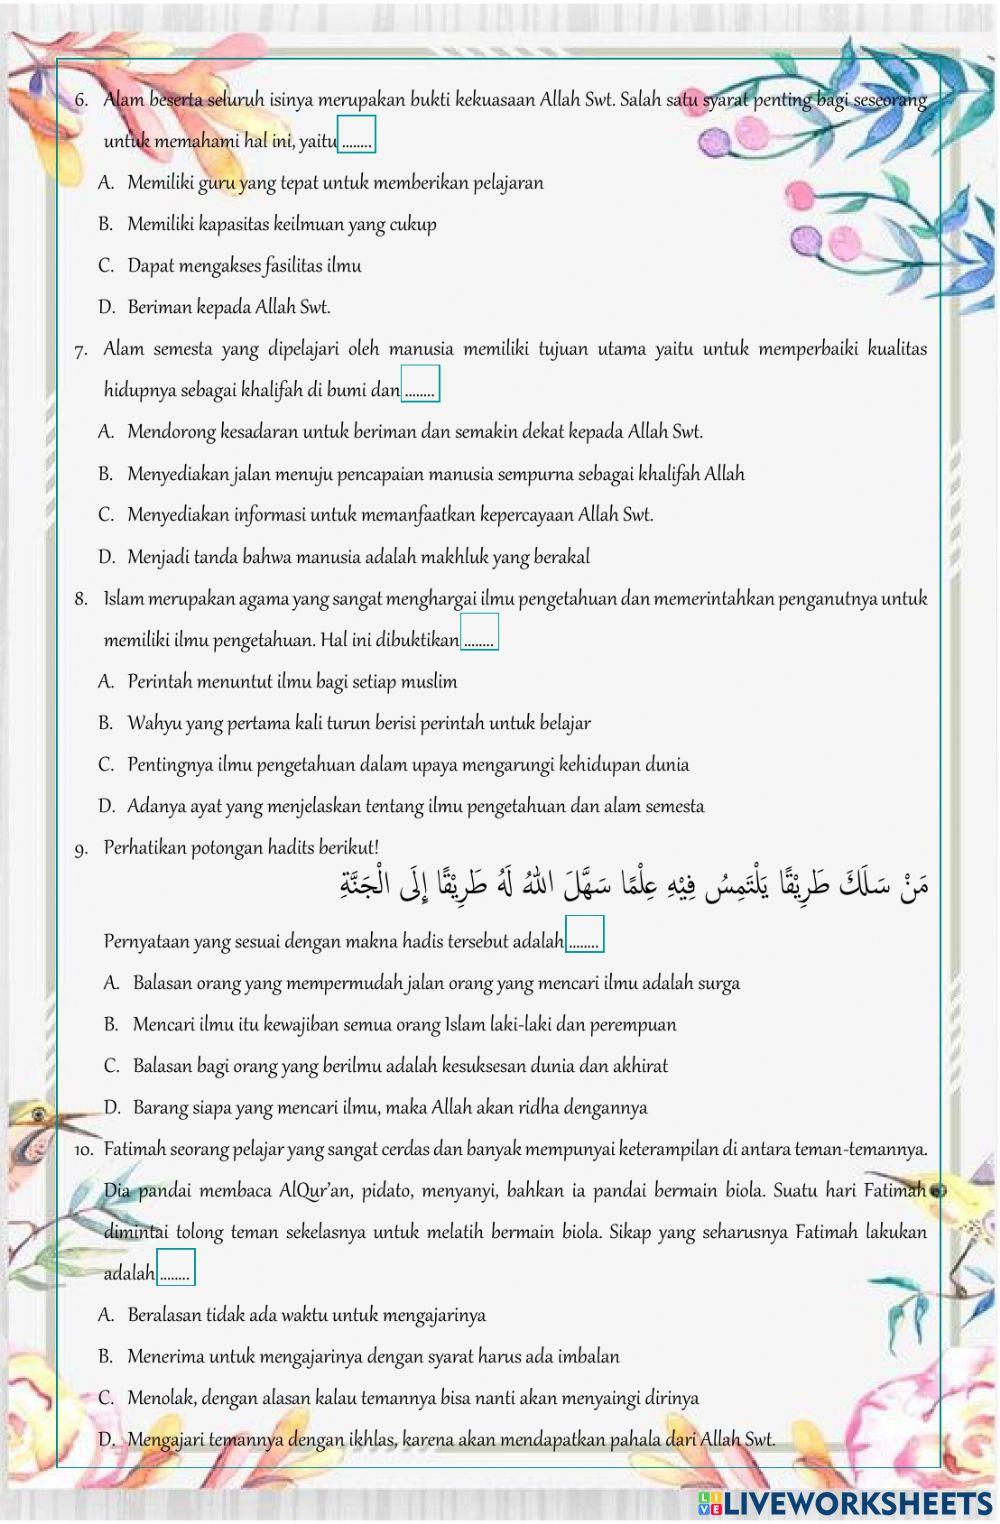 6. Alam beserta seluruh isinya merupakan bukti kekuasaan Allah Swt. Salah satu syarat penting bagi seseorang
untuk memahami hal ini, yaitu ........
A. Memiliki guru yang tepat untuk memberikan pelajaran
B. Memiliki kapasitas keilmuan yang cukup
C. Dapat mengakses fasilitas ilmu
D. Beriman kepada Allah Swt.
7. Alam semesta yang dipelajari oleh manusia memiliki tujuan utama yaitu untuk memperbaiki kualitas
hidupnya sebagai khalifah di bumi dan ........
A. Mendorong kesadaran untuk beriman dan semakin dekat kepada Allah Swt.
B. Menyediakan jalan menuju pencapaian manusia sempurna sebagai khalifah Allah
C. Menyediakan informasi untuk memanfaatkan kepercayaan Allah Swt.
D. Menjadi tanda bahwa manusia adalah makhluk yang berakal
8. Islam merupakan agama yang sangat menghargai ilmu pengetahuan dan memerintahkan penganutnya untuk
memiliki ilmu pengetahuan. Hal ini dibuktikan ........
A. Perintah menuntut ilmu bagi setiap muslim
B. Wahyu yang pertama kali turun berisi perintah untuk belajar
C. Pentingnya ilmu pengetahuan dalam upaya mengarungi kehidupan dunia
D. Adanya ayat yang menjelaskan tentang ilmu pengetahuan dan alam semesta
9. Perhatikan potongan hadits berikut!
مَنْ سَلَكَ طَرِيْقًا يَلْتَمِسُ فِيْهِ عِلْمًا سَهَّلَ اللهُ لَهُ طَرِيْقًا إِلَى الْجَنَّةِ
Pernyataan yang sesuai dengan makna hadis tersebut adalah ........
A. Balasan orang yang mempermudah jalan orang yang mencari ilmu adalah surga
B. Mencari ilmu itu kewajiban semua orang Islam laki-laki dan perempuan
C. Balasan bagi orang yang berilmu adalah kesuksesan dunia dan akhirat
D. Barang siapa yang mencari ilmu, maka Allah akan ridha dengannya
10. Fatimah seorang pelajar yang sangat cerdas dan banyak mempunyai keterampilan di antara teman-temannya.
Dia pandai membaca AlQur'an, pidato, menyanyi, bahkan ia pandai bermain biola. Suatu hari Fatimah
dimintai tolong teman sekelasnya untuk melatih bermain biola. Sikap yang seharusnya Fatimah lakukan
adalah ........
A. Beralasan tidak ada waktu untuk mengajarinya
B. Menerima untuk mengajarinya dengan syarat harus ada imbalan
C. Menolak, dengan alasan kalau temannya bisa nanti akan menyaingi dirinya
D. Mengajari temannya dengan ikhlas, karena akan mendapatkan pahala dari Allah Swt.
LIVE LIVEWORKSHEETS